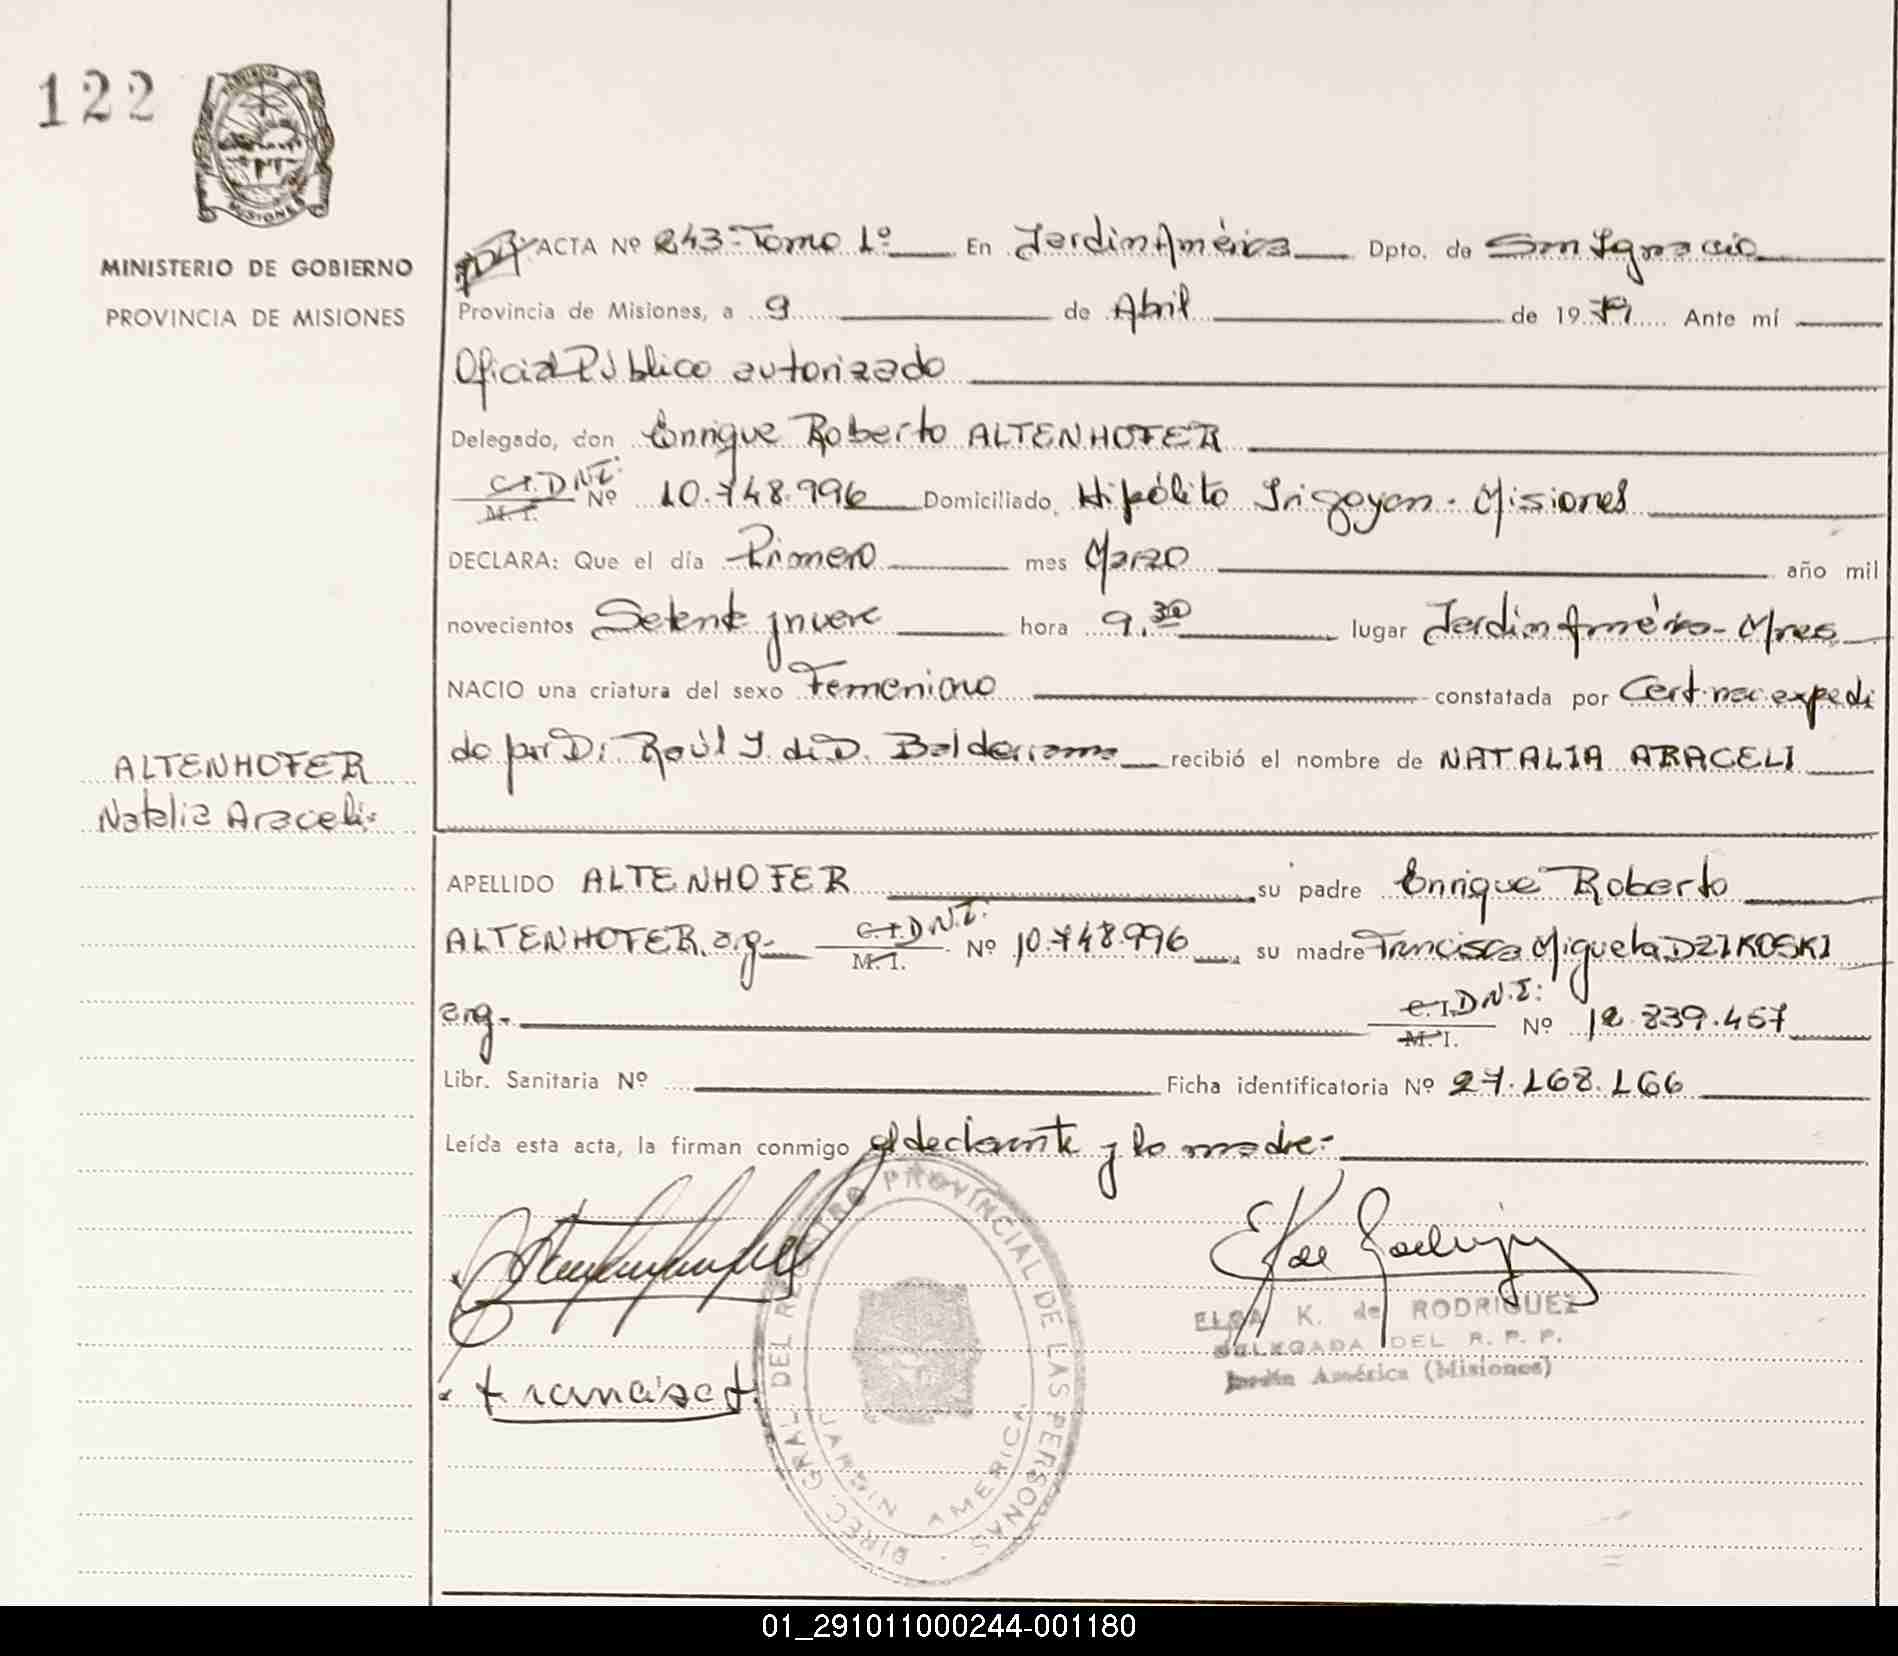 122
MISIONES
MINISTERIO DE GOBIERNO
PROVINCIA DE MISIONES
ACTA Nº 243-Tomo 1º En Jardin América Dpto. de San Ignacio
Provincia de Misiones, a 9 de Abril de 1979 Ante mí
Oficial Público autorizado
Delegado, don Enrique Roberto ALTENHOFER
C.I. D.N.I: M.I. Nº 10.748.996 Domiciliado, Hipólito Irigoyen - Misiones
DECLARA: Que el día Primero mes Marzo año mil
novecientos Setenta y nueve hora 9.30 lugar Jardin América - Mnes
NACIO una criatura del sexo Femenino constatada por Cert. nac. expedi
do por Dr Raúl I. di D. Balderrama recibió el nombre de NATALIA ARACELI
ALTENHOFER
Natalia Araceli-
APELLIDO ALTENHOFER su padre Enrique Roberto
ALTENHOFER, arg- C.I. D.N.I: M.I. Nº 10.748.996 su madre Francisca Miguela DZIKOSKI
arg- C.I. D.N.I: M.I. Nº 12.839.457
Libr. Sanitaria Nº Ficha identificatoria Nº 27.168.166
Leída esta acta, la firman conmigo el declarante y la madre-
DIREC. GRAL. DEL REGISTRO PROVINCIAL DE LAS PERSONAS
JARDIN AMERICA
ELSA K. de RODRIGUEZ
DELEGADA DEL R. P. P.
Jardín América (Misiones)
Francisca
01_291011000244-001180